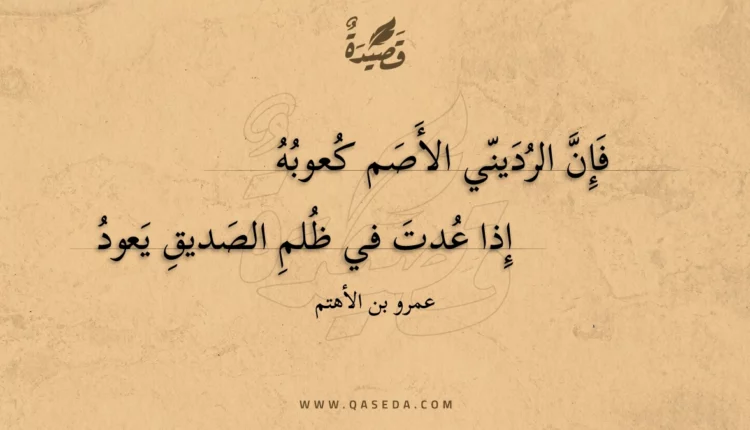 قَصِيْدَةٌ
فَإِنَّ الرُدَينّي الأَصَم كُعوبُهُ
إِذا عُدتَ في ظُلمِ الصَديقِ يَعودُ
عمرو بن الأهتم
WWW.QASEDA.COM